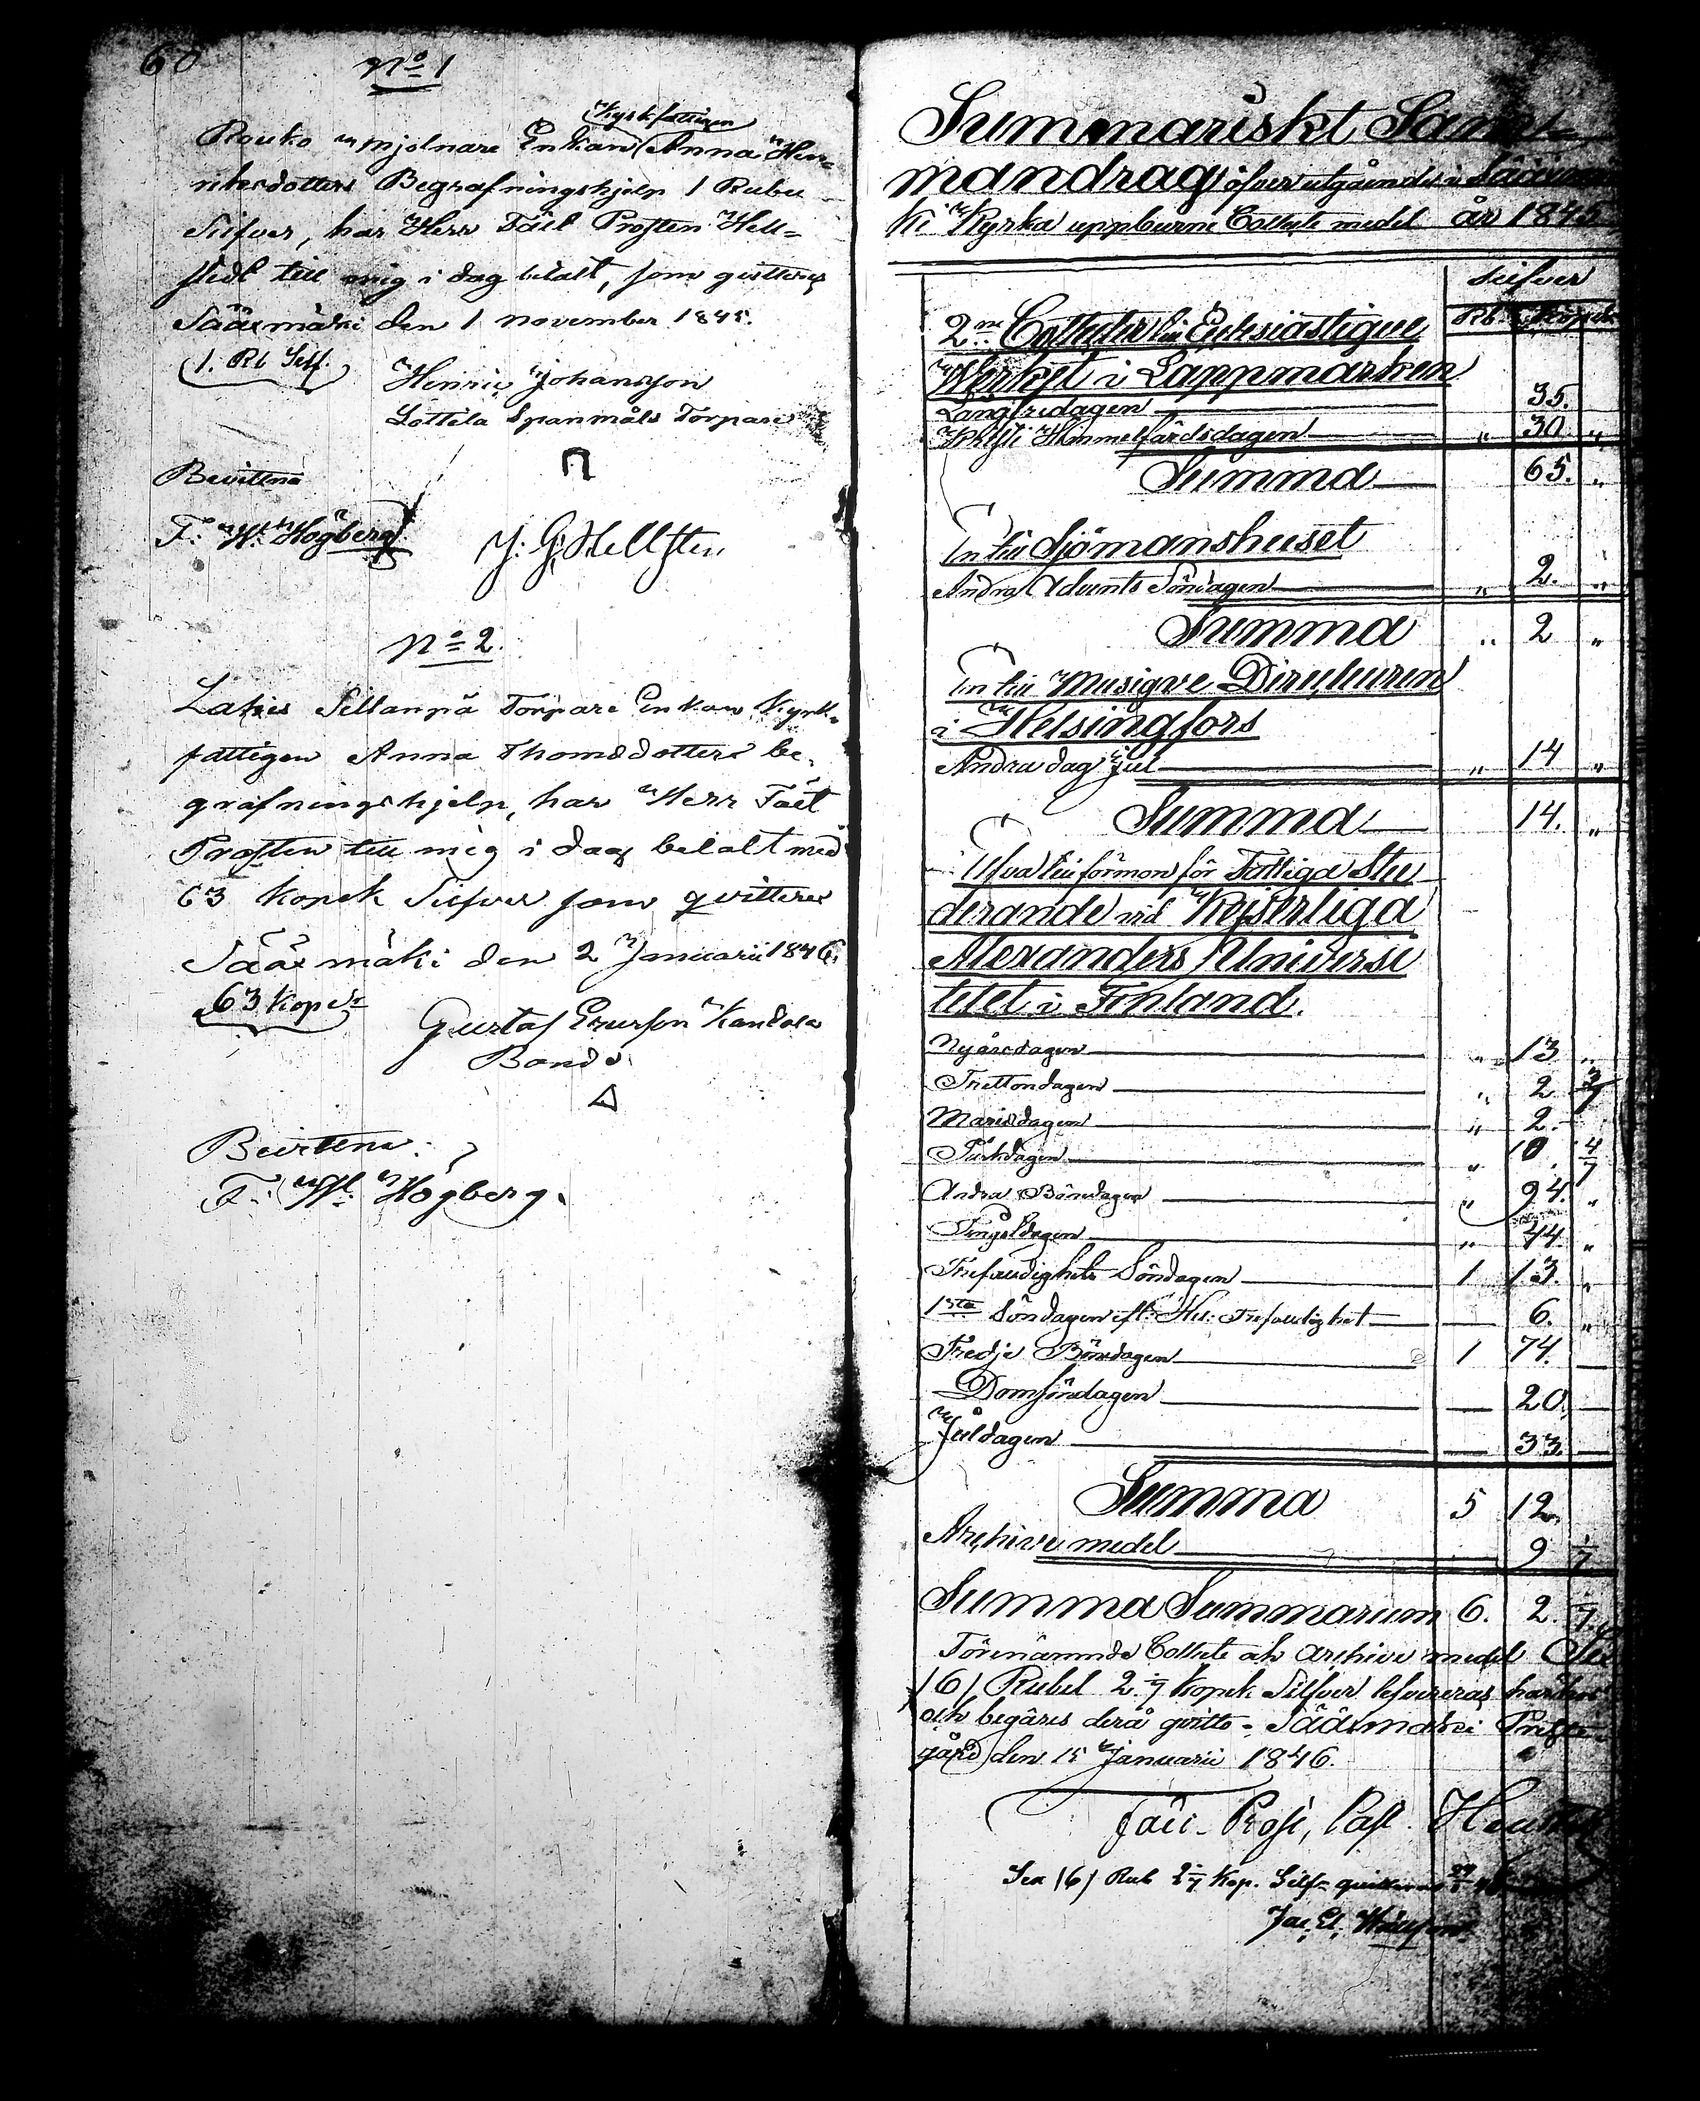 60
No 1
Kyrkfattigen
Rouko mjölnare Enkan Anna Hen=
riksdotters Begrafningshjelp 1 Rubel
Silfver, har Herr Fält Prosten Hell=
stedt till mig i dag betalt, som qvitteras
Sääxmäki den 1 November 1845.
1. Rb Silf.
Henric Johansson
Lottila Spanmåls Torpare
Bevittna
F. W. Högberg
J. G. Hellsten
No 2.
Torpare Enkan Kyrk=
fattigen Anna Thomsdotters be=
grafningshjelp, har Herr Fält
Prosten till mig i dag betalt med
63 kopek Silfver som qvitteras
Sääxmäki den 2 Januarii 1846.
63 Kopek
Gustaf Ericsson Kandola
Bonde
Bevittna:
F. W. Högberg.
Summariskt Sam=
mandrag öfver utgående i Sääxmä
ki Kyrka uppburne Collecte medel år 1845
Silfver
Rb. Kopek
2ne Collecter till Ecklesiastique
Werket i Lappmarken
Långfredagen 35.
Christi Himmelsfärdsdagen " 30 "
Summa 65. "
En till Sjömanshuset
Andra Advents Söndagen " 2. "
Summa " 2 "
En till Musique Directeuren
i Helsingfors
Andra dag Jul " 14 "
Summa 14. "
till förmon för Fattiga Stu
derande vid Kejserliga
Alexanders Universi
tetet i Finland.
Nyårsdagen " 13 "
Trettondagen " 2 3/7
Mariædagen " 2. -
Påskdagen " 10. 4/7
Andra Böndagen " 94. "
Pingstdagen " 44. "
Trefaldighets Söndagen 1 13. "
1sta Söndagen eft. Hel. Trefaldighet — 6. "
Tredje Böndagen 1 74. —
Domsöndagen — 20. —
Juldagen — 33. —
Summa 5 12.
Archive medel — 9 1/7
Summa Summarum 6. 2. 1/7
Förenämnde Collecte och Archive medel Sex
(6) Rubel 2 1/7 Kopek Silfver lefvereras härhos
och begäres derå qvitto - Sääxmäki Preste
gård den 15 Januarii 1846.
Sex (6) Rub 2 1/7 Kop. Silf= quitteras